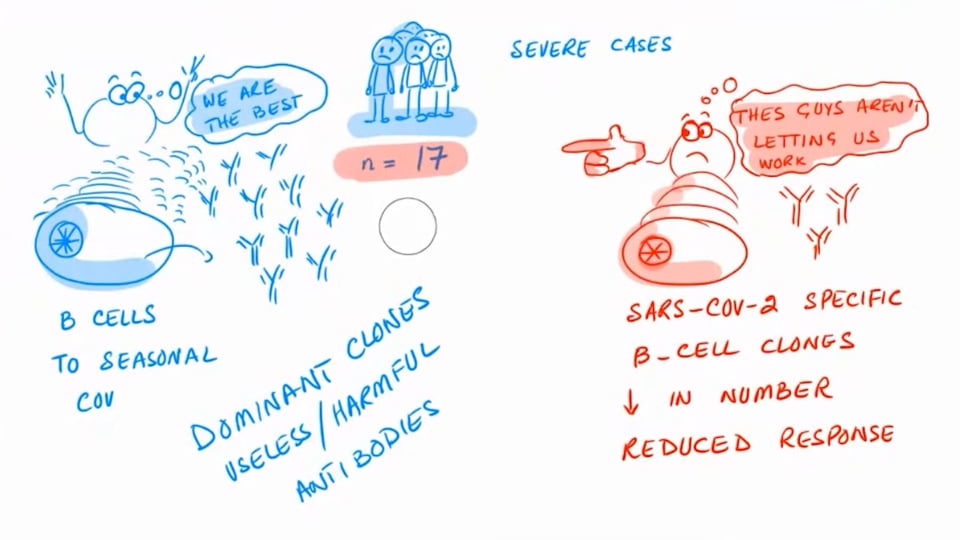 SEVERE CASES
WE ARE
THE BEST
n = 17
THES GUYS AREN'T
LETTING US
WORK
B CELLS
TO SEASONAL
COV
DOMINANT CLONES
USELESS/HARMFUL
ANTIBODIES
SARS-COV-2 SPECIFIC
B-CELL CLONES
↓ IN NUMBER
REDUCED RESPONSE